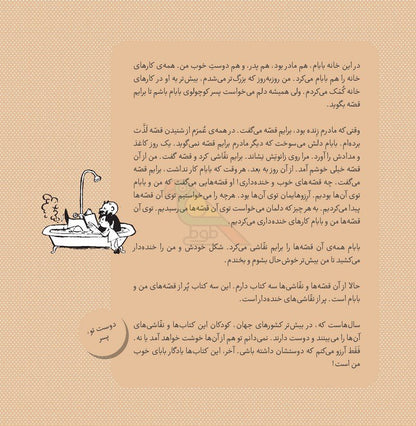 در این خانه بابام، هم مادر بود، هم پدر، و هم دوستِ خوب من. همه‌ی کارهای
خانه را هم بابام می‌کرد. من روزبه‌روز که بزرگ‌تر می‌شدم، بیش‌تر به او در کارهای
خانه کُمَک می‌کردم. ولی همیشه دلم می‌خواست پسر کوچولوی بابام باشم تا برایم
قصّه بگوید.
وقتی که مادرم زنده بود، برایم قصّه می‌گفت. در همه‌ی عُمرَم از شنیدن قصّه لَذَّت
برده‌ام. بابام دلش می‌سوخت که دیگر مادرم برایم قصّه نمی‌گوید. یک روز کاغذ
و مدادش را آورد. مرا روی زانویَش نِشاند. برایم نقّاشی کرد و قصّه گفت. من از آن
قصّه خیلی خوشم آمد. از آن روز به بعد، هر وقت که بابام کار نداشت، برایم قصّه
می‌گفت. چه قصّه‌های خوب و خنده‌داری! او قصّه‌هایی می‌گفت که من و بابام
توی آن‌ها بودیم. آرزوهایمان توی آن‌ها بود. هرچه را می‌خواستیم توی آن قصّه‌ها
پیدا می‌کردیم. به هر چیز که دلمان می‌خواست توی آن قصّه‌ها می‌رسیدیم. توی آن
قصّه‌ها من و بابام کارهای خنده‌داری می‌کردیم.
بابام همه‌ی آن قصّه‌ها را برایم نقّاشی می‌کرد. شکل خودش و من را خنده‌دار
می‌کشید تا من بیش‌تر خوش‌حال بشوم و بخندم.
حالا از آن قصّه‌ها و نقّاشی‌ها سه کتاب دارم. این سه کتاب پُر از قصّه‌های من و
بابام است. پر از نقّاشی‌های خنده‌دار است.
سال‌هاست که، در بیش‌تر کشورهای جهان، کودکان این کتاب‌ها و نقّاشی‌های
آن‌ها را می‌بینند و دوست دارند. نمی‌دانم تو هم از آن‌ها خوشت خواهد آمد یا نه.
فَقَط آرزو می‌کنم که دوستشان داشته باشی. آخر، این کتاب‌ها یادگار بابای خوب
من است!
دوست تو،
پسر